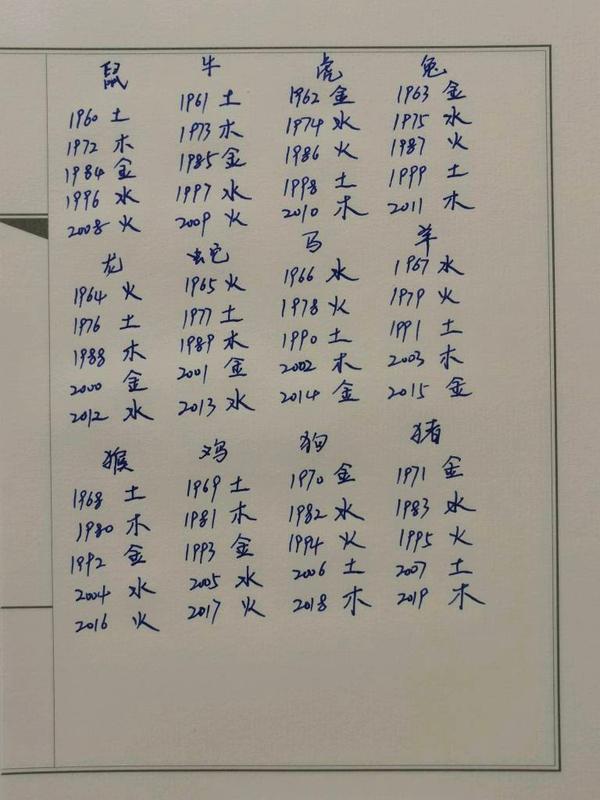 鼠 牛 虎 兔
1960 土 1961 土 1962 金 1963 金
1972 木 1973 木 1974 水 1975 水
1984 金 1985 金 1986 火 1987 火
1996 水 1997 水 1998 土 1999 土
2008 火 2009 火 2010 木 2011 木
龙 蛇 马 羊
1964 火 1965 火 1966 水 1967 水
1976 土 1977 土 1978 火 1979 火
1988 木 1989 水 1990 土 1991 土
2000 金 2001 金 2002 木 2003 木
2012 水 2013 水 2014 金 2015 金
猴 鸡 狗 猪
1968 土 1969 土 1970 金 1971 金
1980 木 1981 木 1982 水 1983 水
1992 金 1993 金 1994 火 1995 火
2004 水 2005 水 2006 土 2007 土
2016 火 2017 火 2018 木 2019 木